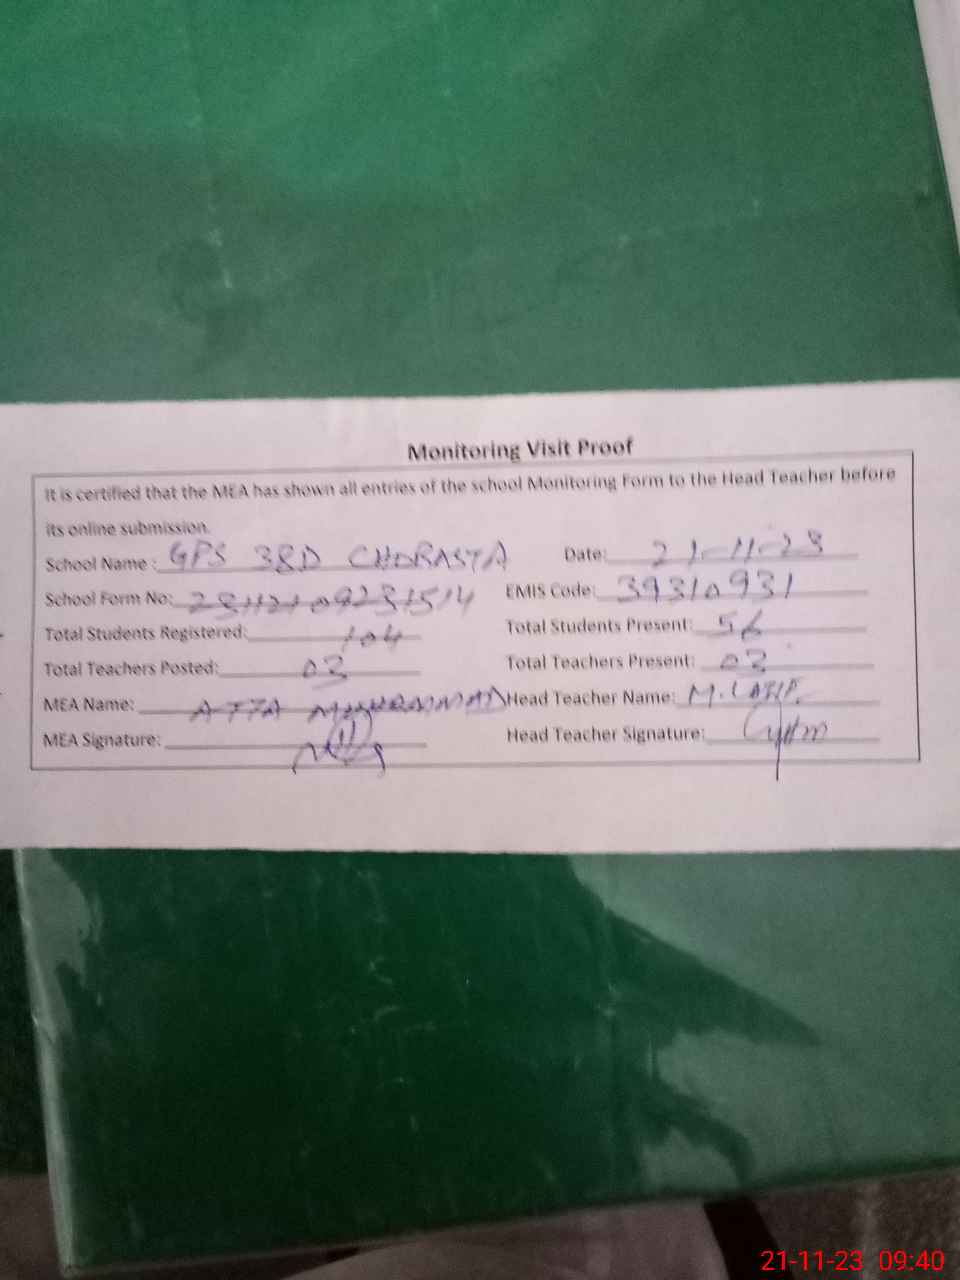 Monitoring Visit Proof
It is certified that the MEA has shown all entries of the school Monitoring Form to the Head Teacher before
its online submission.
School Name : GPS 38D CHORASTA Date: 21-11-23
School Form No: EMIS Code: 39310931
Total Students Registered: 104 Total Students Present: 56
Total Teachers Posted: 03 Total Teachers Present: 03
MEA Name: ATTA MUHAMMAD Head Teacher Name: M. LATIF
MEA Signature: Head Teacher Signature:
21-11-23 09:40